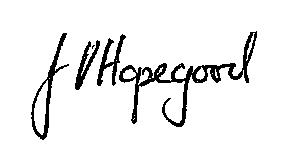 J D Hopegood